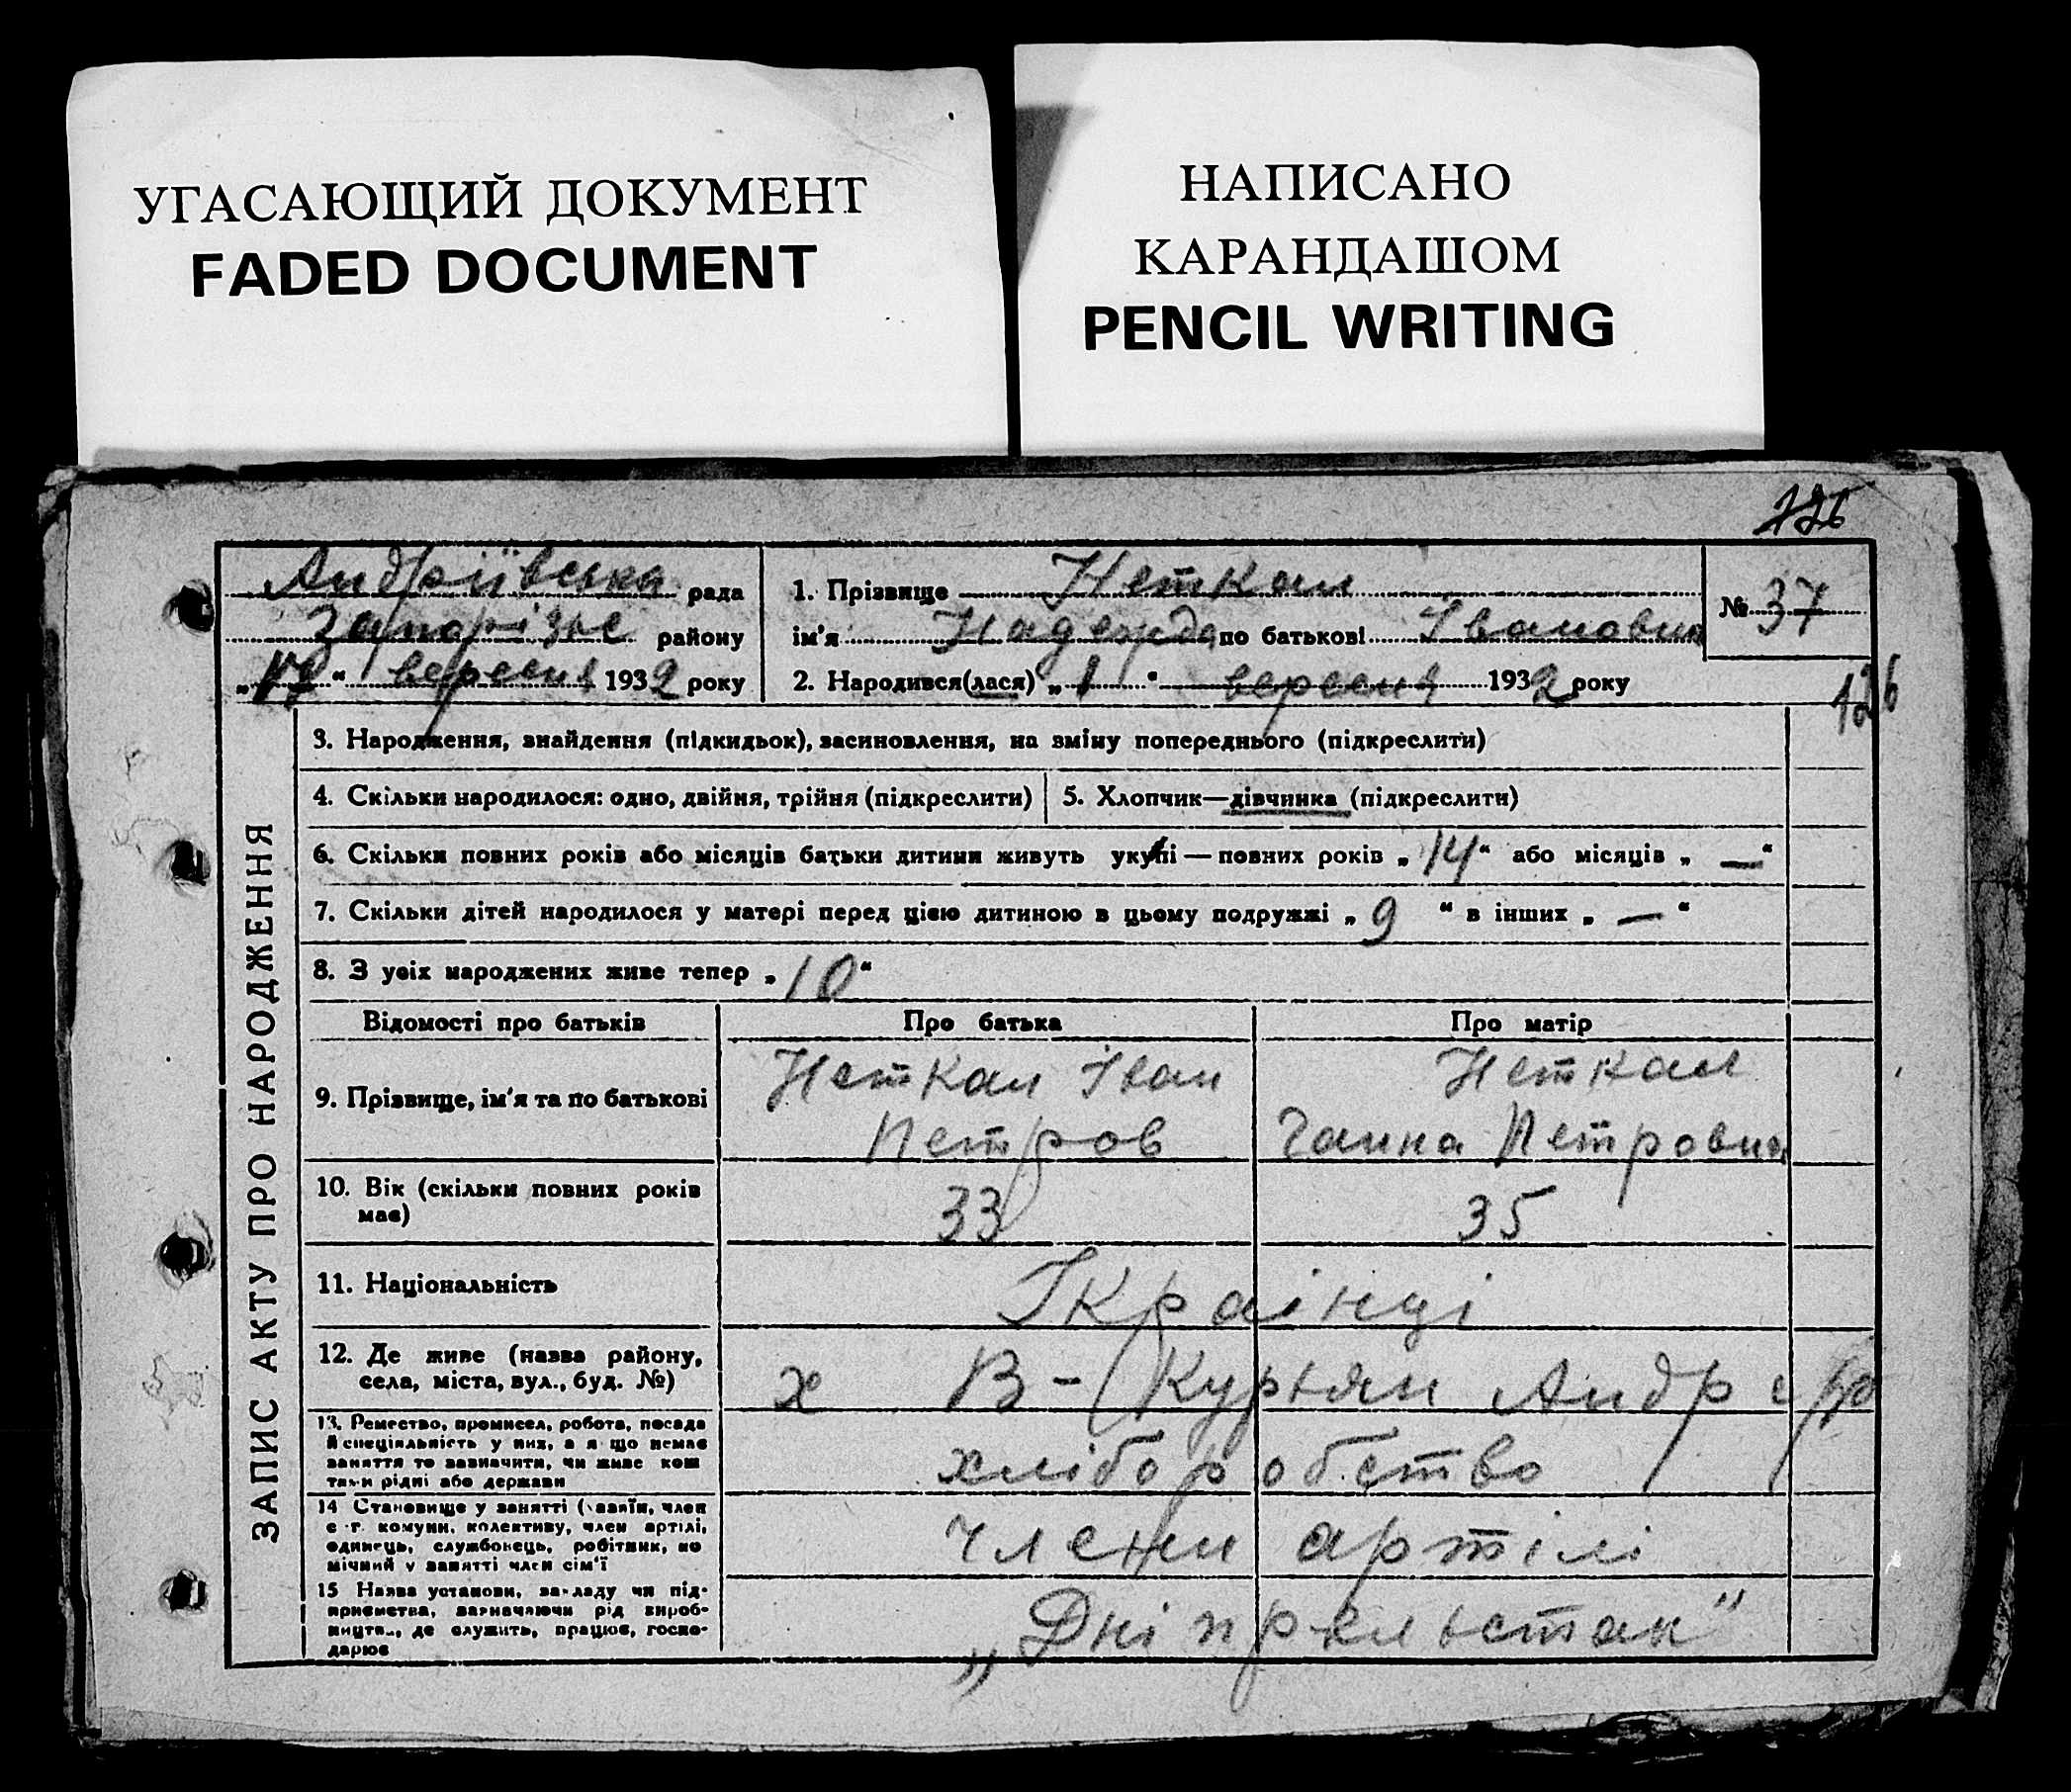 УГАСАЮЩИЙ ДОКУМЕНТ
FADED DOCUMENT
НАПИСАНО
КАРАНДАШОМ
PENCIL WRITING
126
Андріївська рада
Запорізьк району
вересня 1932 року
1. Прізвище Неткал
ім'я Надежда по батькові Івановна
2. Народився(лася) „1“ вересня 1932 року
№ 37
126
ЗАПИС АКТУ ПРО НАРОДЖЕННЯ
3. Народження, знайдення (підкидьок), засиновлення, на зміну попереднього (підкреслити)
4. Скільки народилося: одно, двійня, трійня (підкреслити)
5. Хлопчик—дівчинка (підкреслити)
6. Скільки повних років або місяців батьки дитини живуть укупі — повних років „14“ або місяців „—“
7. Скільки дітей народилося у матері перед цією дитиною в цьому подружжі „9“ в інших „—“
8. З усіх народжених живе тепер „10“
Відомості про батьків
Про батька
Про матір
9. Прізвище, ім'я та по батькові
Неткал Іван
Петров
Неткал
Ганна Петровна
10. Вік (скільки повних років
має)
33
35
11. Національність
Українці
12. Де живе (назва району,
села, міста, вул., буд. №)
х В-Курьян Андр с/р
13. Ремество, промисел, робота, посада
й спеціяльність у них, а я що немає
заняття то зазначити, чи живе кош
тами рідні або держави
хліборобство
14 Становище у занятті (хазяїн, член
с.-г. комуни, колективу, член артілі,
одинець, службовець, робітник, по
мічний у занятті член сім'ї
члени артілі
15 Назва установи, закладу чи під-
приємства, зазначаючи рід вироб-
ництв., де служить, працює, госпо-
дарює
„Дніпрельстан"